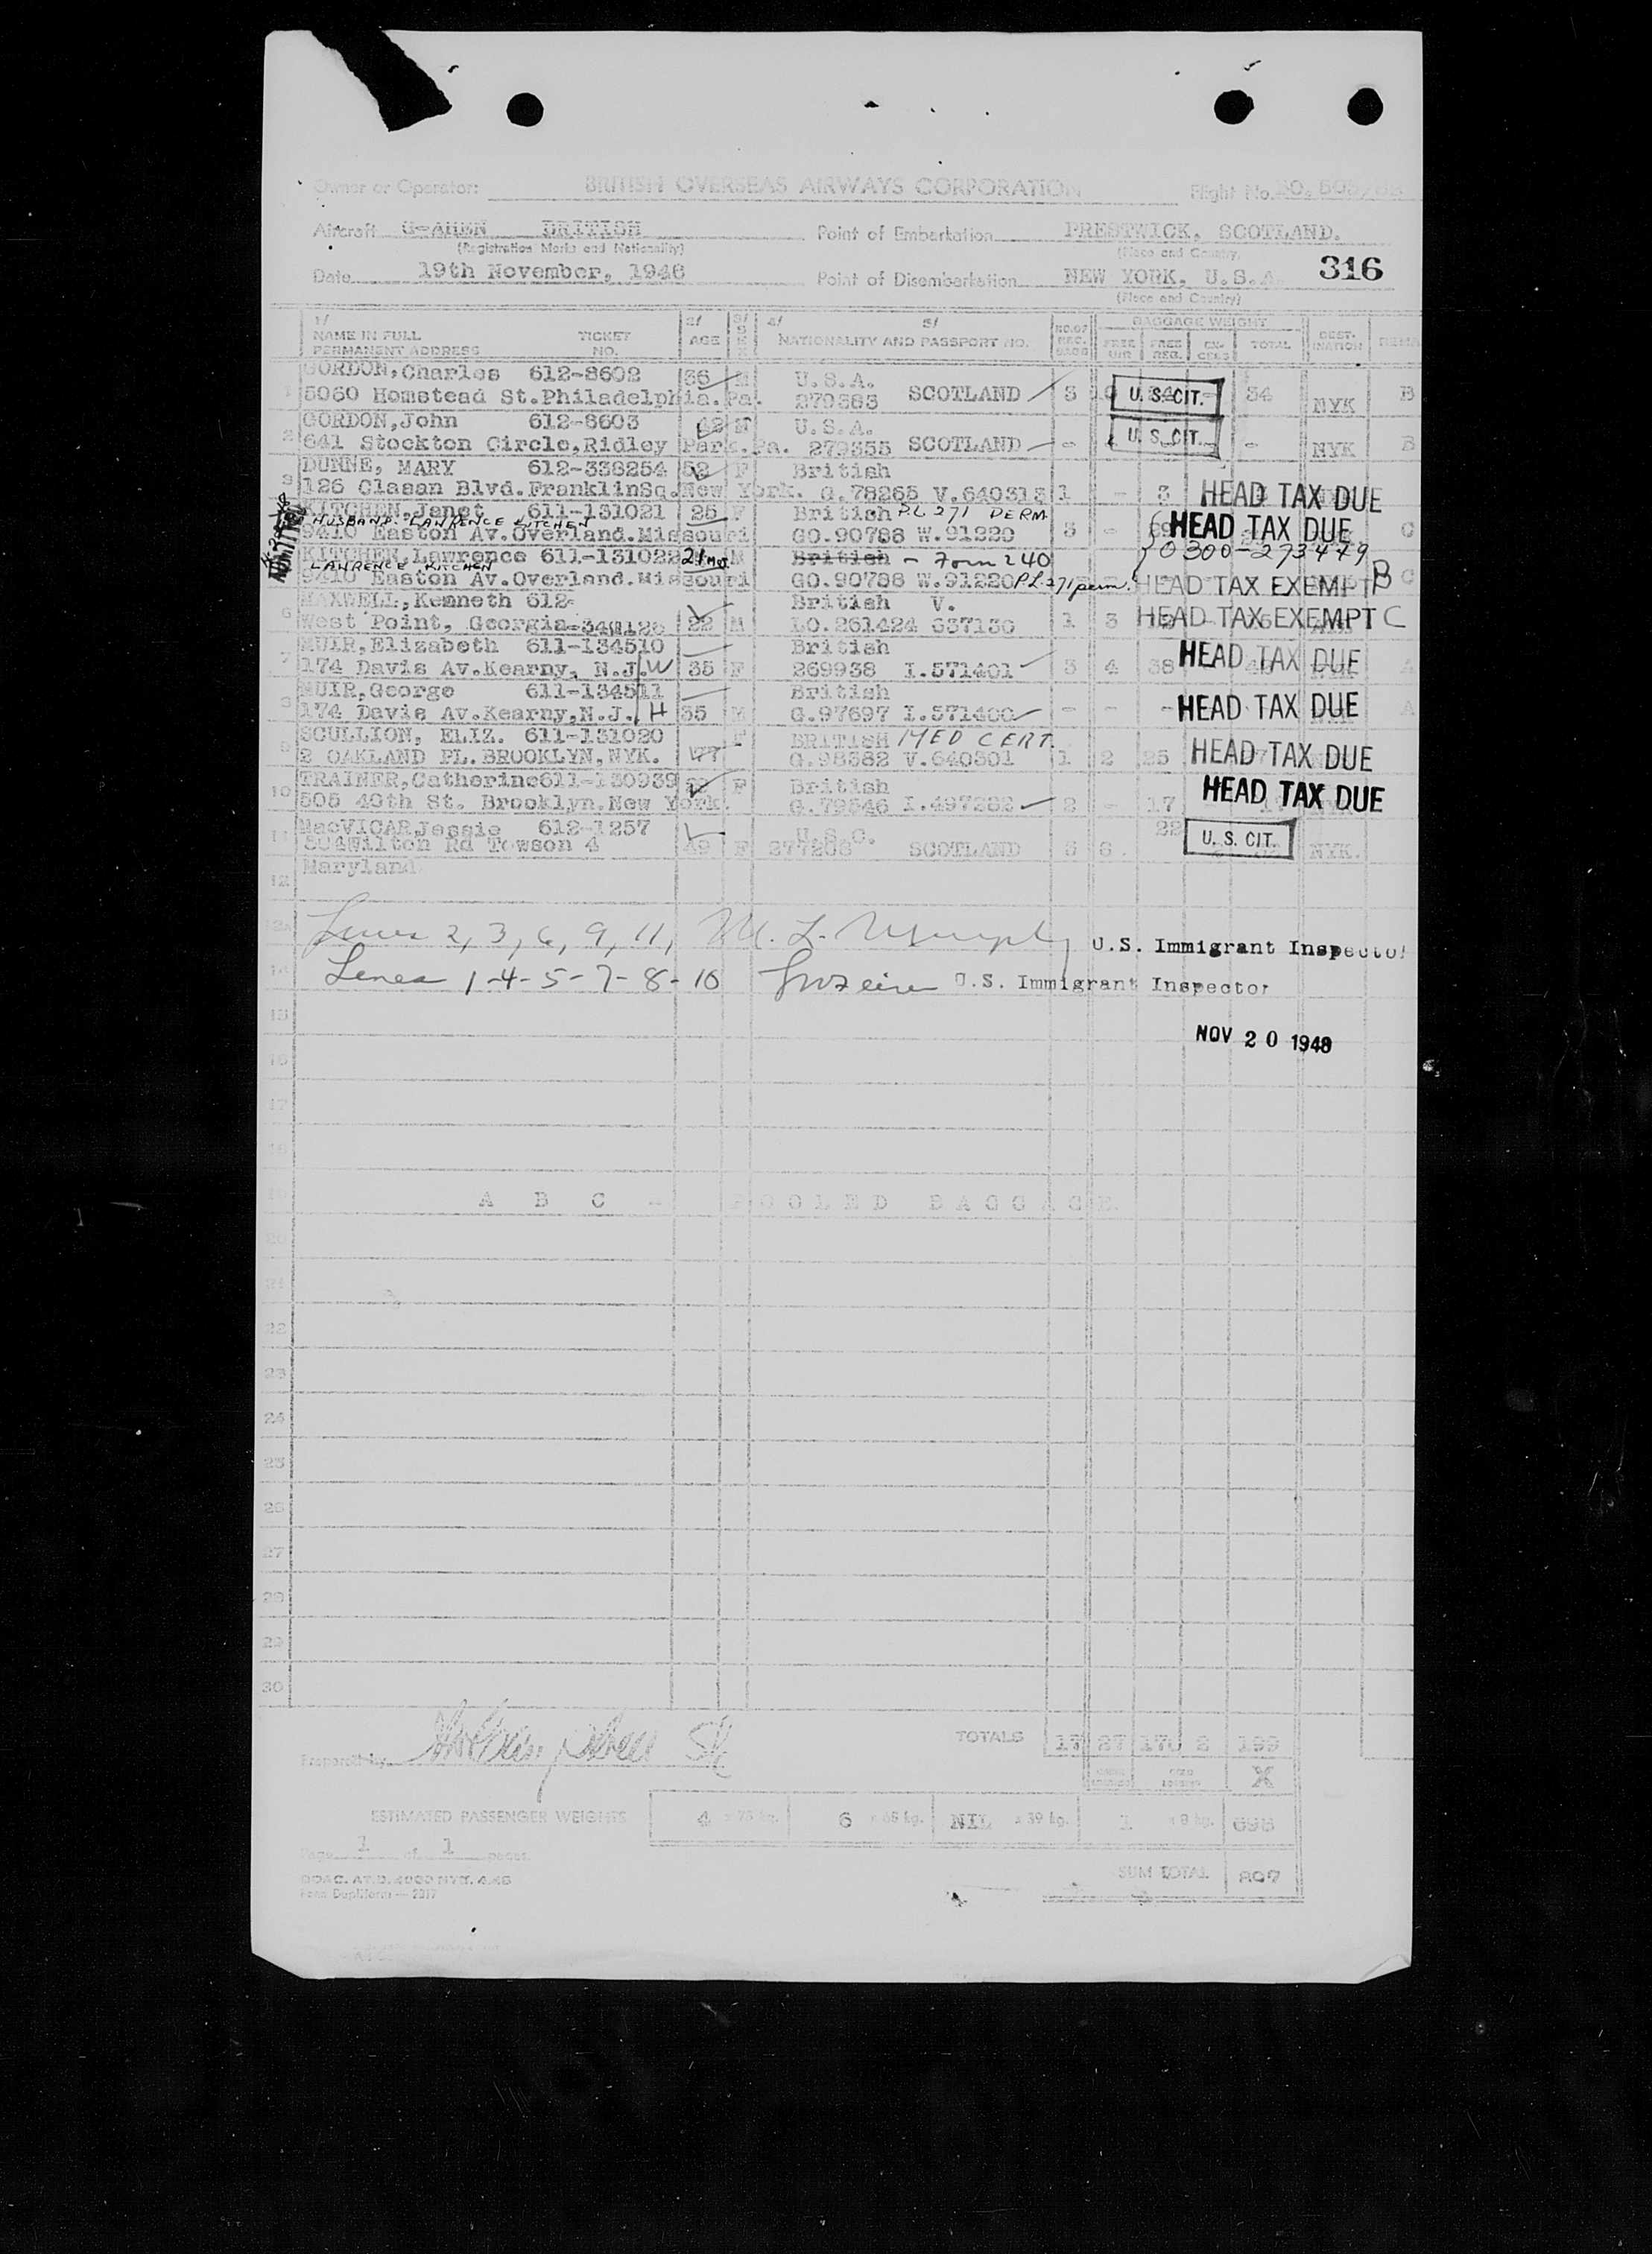 Owner or Operator: BRITISH OVERSEAS AIRWAYS CORPORATION Flight No.
Aircraft G-AHEN BRITISH Point of Embarkation PRESTWICK, SCOTLAND.
(Registration Marks and Nationality) (Place and Country)
Date 19th November, 1946 Point of Disembarkation NEW YORK, U.S.A. 316
(Place and Country)
1/ 2/ 3/ 4/ 5/ BAGGAGE WEIGHT
NAME IN FULL TICKET AGE SEX NATIONALITY AND PASSPORT NO. NO. OF REC. BAGS FREE REG. EXCESS TOTAL DESTINATION
PERMANENT ADDRESS NO.
1 GORDON, Charles 612-8602 36 M U.S.A.
5060 Homstead St. Philadelphia. Pa. 279383 SCOTLAND 3 U.S. CIT. 34 NYK B
2 GORDON, John 612-8603 M U.S.A.
641 Stockton Circle, Ridley Park. Pa. 279355 SCOTLAND - U.S. CIT. - NYK B
3 DUNNE, MARY 612-338254 52 F British
126 Clasan Blvd. FranklinSq. New York. G.78265 V.640313 1 - 8 HEAD TAX DUE
KITCHEN, Janet 611-131021 25 F British P.L 271 PERM
HUSBAND - LAWRENCE KITCHEN
9410 Easton Av. Overland. Missouri GO.90788 W.91220 5 - HEAD TAX DUE C
0300-273479
KITCHEN, Lawrence 611-131022 21 mos M British - Form 240
LAWRENCE KITCHEN
9410 Easton Av. Overland. Missouri GO.90788 W.91220 P.L 271 perm. HEAD TAX EXEMPT B C
6 MAXWELL, Kenneth 612- British V.
West Point, Georgia-348126 22 M LO.261424 637130 1 3 HEAD TAX EXEMPT C
7 MUIR, Elizabeth 611-134510 British
174 Davis Av. Kearny, N.J. W 35 F 269938 I.571401 3 4 38 HEAD TAX DUE A
8 MUIR, George 611-134511 British
174 Davis Av. Kearny, N.J. H 35 M G.97697 I.571400 - - - HEAD TAX DUE A
9 SCULLION, ELIZ. 611-131020 F BRITISH MED CERT.
2 OAKLAND PL. BROOKLYN, NYK. G.98382 V.640301 1 2 25 HEAD TAX DUE
10 TRAINER, Catherine 611-130939 F British
505 40th St. Brooklyn. New York. G.79546 I.497282 2 - 17 HEAD TAX DUE
11 MacVICAR Jessie 612-1257 U.S.C. 22
504 Wilton Rd Towson 4 49 F 277208 SCOTLAND 5 8. U.S. CIT. NYK.
Maryland
12
Lines 2, 3, 6, 9, 11, M. L. Murphy U.S. Immigrant Inspector
14 Lines 1-4-5-7-8-10 U.S. Immigrant Inspector
15
NOV 20 1946
16
17
18
19 A B C - POOLED BAGGAGE.
20
21
22
23
24
25
26
27
28
29
30
TOTALS 17 27 170 2 199
Prepared by
X
ESTIMATED PASSENGER WEIGHTS 4 x 75 kg. 6 x 65 kg. NIL x 39 kg. 1 x 8 kg. 698
Page 1 of 1 pages
SUM TOTAL 897